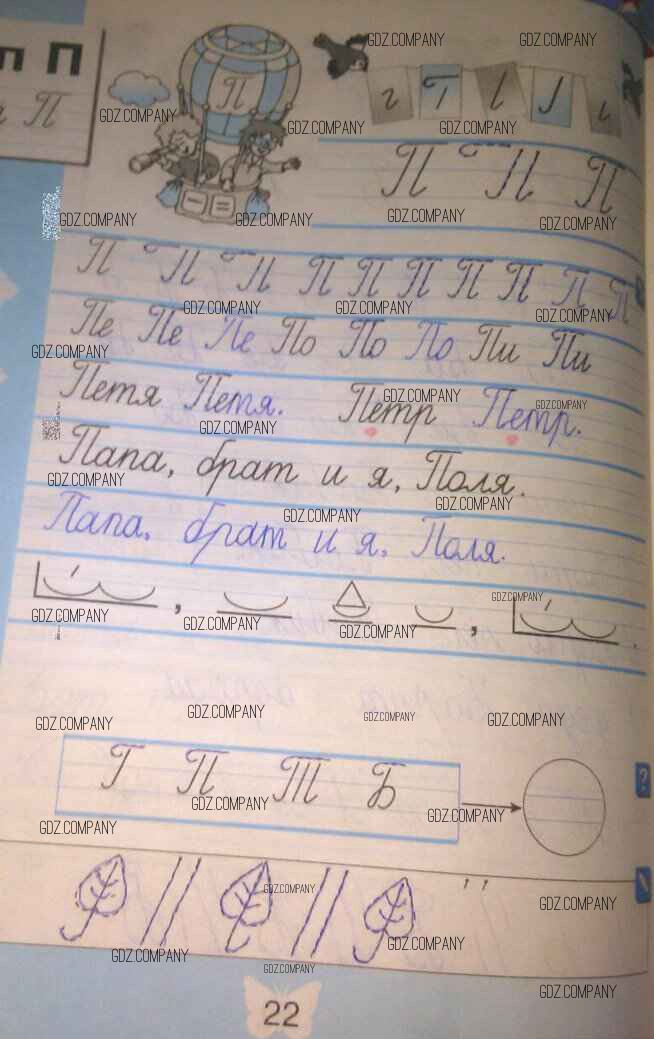 п П
П
П П П
П П П П П П П П П П
Пе Пе Пе По По По Пи Пи
Петя Петя. Петр Петр.
Папа, брат и я, Поля.
Папа, брат и я, Поля.
Г П Т Б
?
22
GDZ.COMPANY